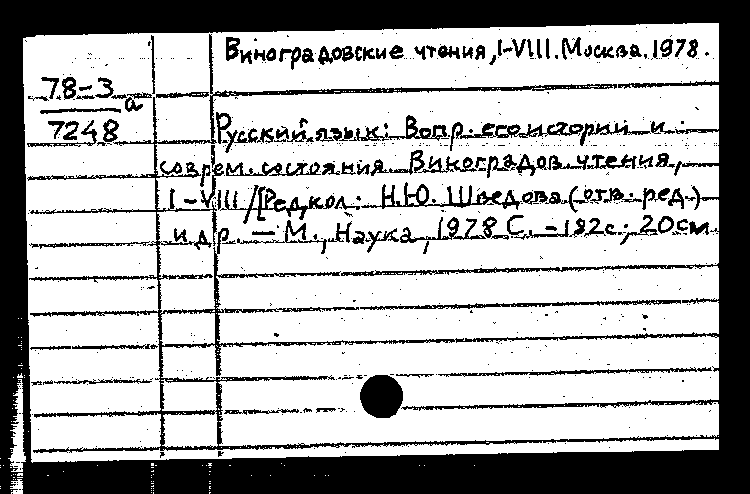 Виноградовские чтения, I-VIII. Москва. 1978.
78-3 а
7248
Русский язык: Вопр. его истории и
соврем. состояния. Виноградов. чтения,
I-VIII /[Ред.кол: Н.Ю. Шведова (отв. ред.)
и др. — М., Наука, 1978 С. - 182с; 20см.